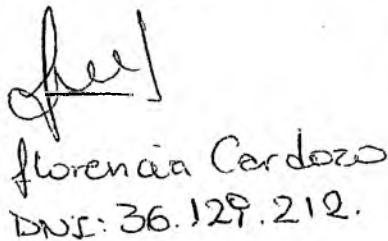 florencia Cardozo
DNI: 36.129.212.